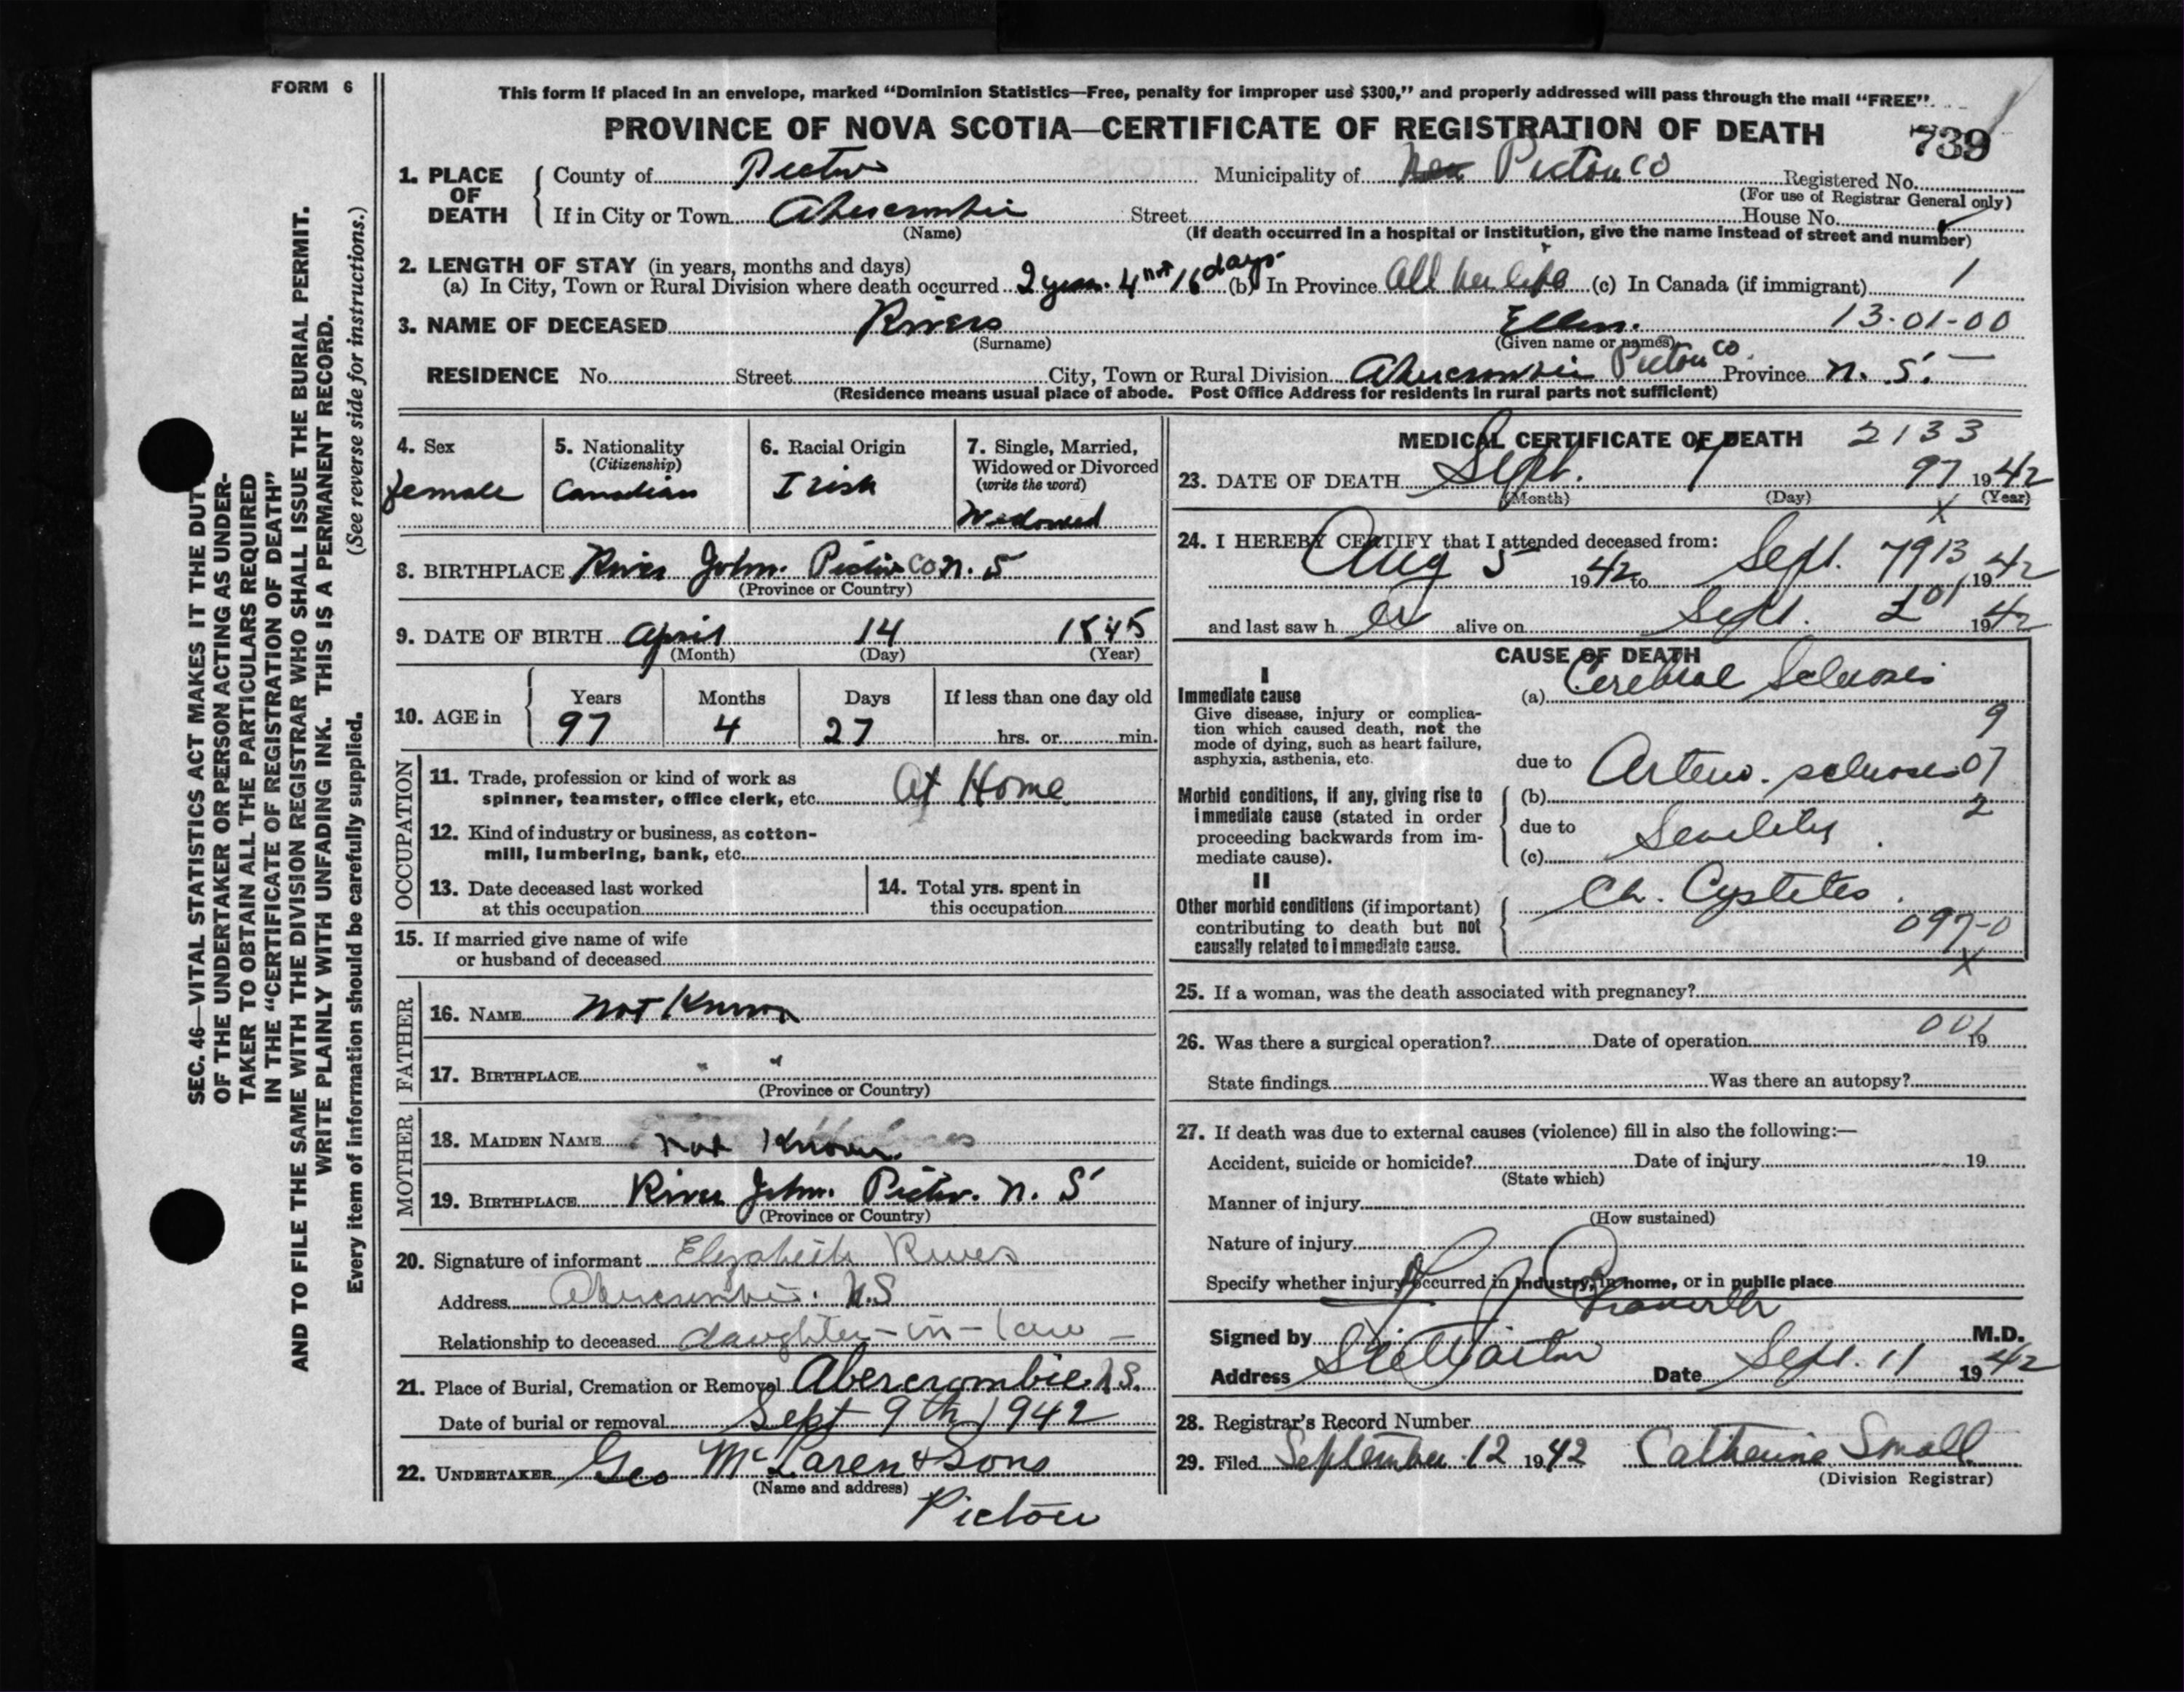 FORM 6
This form if placed in an envelope, marked “Dominion Statistics—Free, penalty for improper use $300,” and properly addressed will pass through the mail “FREE”.
PROVINCE OF NOVA SCOTIA—CERTIFICATE OF REGISTRATION OF DEATH
739
1. PLACE OF DEATH
County of Pictou Municipality of Pictou Co Registered No.
(For use of Registrar General only)
If in City or Town Abercrombie Street House No.
(Name) (If death occurred in a hospital or institution, give the name instead of street and number)
2. LENGTH OF STAY (in years, months and days)
(a) In City, Town or Rural Division where death occurred 2 years 4 16 days (b) In Province All her life (c) In Canada (if immigrant) 1
3. NAME OF DECEASED Rivers Ellen. 13-01-00
(Surname) (Given name or names)
RESIDENCE No. Street City, Town or Rural Division Abercrombie Pictou Co. Province N. S.
(Residence means usual place of abode. Post Office Address for residents in rural parts not sufficient)
4. Sex
female
5. Nationality
(Citizenship)
Canadian
6. Racial Origin
Irish
7. Single, Married,
Widowed or Divorced
(write the word)
Widowed
8. BIRTHPLACE River John. Pictou Co N. S
(Province or Country)
9. DATE OF BIRTH April 14 1845
(Month) (Day) (Year)
10. AGE in
Years Months Days If less than one day old
97 4 27 hrs. or min.
OCCUPATION
11. Trade, profession or kind of work as
spinner, teamster, office clerk, etc. At Home
12. Kind of industry or business, as cotton-
mill, lumbering, bank, etc.
13. Date deceased last worked
at this occupation
14. Total yrs. spent in
this occupation
15. If married give name of wife
or husband of deceased
FATHER
16. NAME Not Known
17. BIRTHPLACE " "
(Province or Country)
MOTHER
18. MAIDEN NAME Not Known
19. BIRTHPLACE River John. Pictou. N. S
(Province or Country)
20. Signature of informant Elizabeth Rivers
Address Abercrombie. N.S
Relationship to deceased daughter-in-law
21. Place of Burial, Cremation or Removal Abercrombie N.S.
Date of burial or removal Sept 9th 1942
22. UNDERTAKER Geo McLaren & Sons
(Name and address)
Pictou
MEDICAL CERTIFICATE OF DEATH 2133
23. DATE OF DEATH Sept. 7 97 1942
(Month) (Day) (Year)
X
24. I HEREBY CERTIFY that I attended deceased from:
Aug 5 1942 to Sept. 7 913 1942
and last saw her alive on Sept. 1942
CAUSE OF DEATH
I
Immediate cause
Give disease, injury or complica-
tion which caused death, not the
mode of dying, such as heart failure,
asphyxia, asthenia, etc.
(a) Cerebral Sclerosis
9
due to
Arterio-sclerosis 07
Morbid conditions, if any, giving rise to
immediate cause (stated in order
proceeding backwards from im-
mediate cause).
(b)
2
due to
Senility
(c)
II
Other morbid conditions (if important)
contributing to death but not
causally related to immediate cause.
Ch. Cystitis
097-0
X
25. If a woman, was the death associated with pregnancy?
26. Was there a surgical operation? Date of operation 001 19
State findings Was there an autopsy?
27. If death was due to external causes (violence) fill in also the following:—
Accident, suicide or homicide? Date of injury 19
(State which)
Manner of injury
(How sustained)
Nature of injury
Specify whether injury occurred in industry, in home, or in public place
Signed by M.D.
Address Date Sept. 11 1942
28. Registrar's Record Number
29. Filed September 12 1942 Catherine Small
(Division Registrar)
SEC. 46—VITAL STATISTICS ACT MAKES IT THE DUTY
OF THE UNDERTAKER OR PERSON ACTING AS UNDER-
TAKER TO OBTAIN ALL THE PARTICULARS REQUIRED
IN THE “CERTIFICATE OF REGISTRATION OF DEATH”
AND TO FILE THE SAME WITH THE DIVISION REGISTRAR WHO SHALL ISSUE THE BURIAL PERMIT.
WRITE PLAINLY WITH UNFADING INK. THIS IS A PERMANENT RECORD.
Every item of information should be carefully supplied. (See reverse side for instructions.)